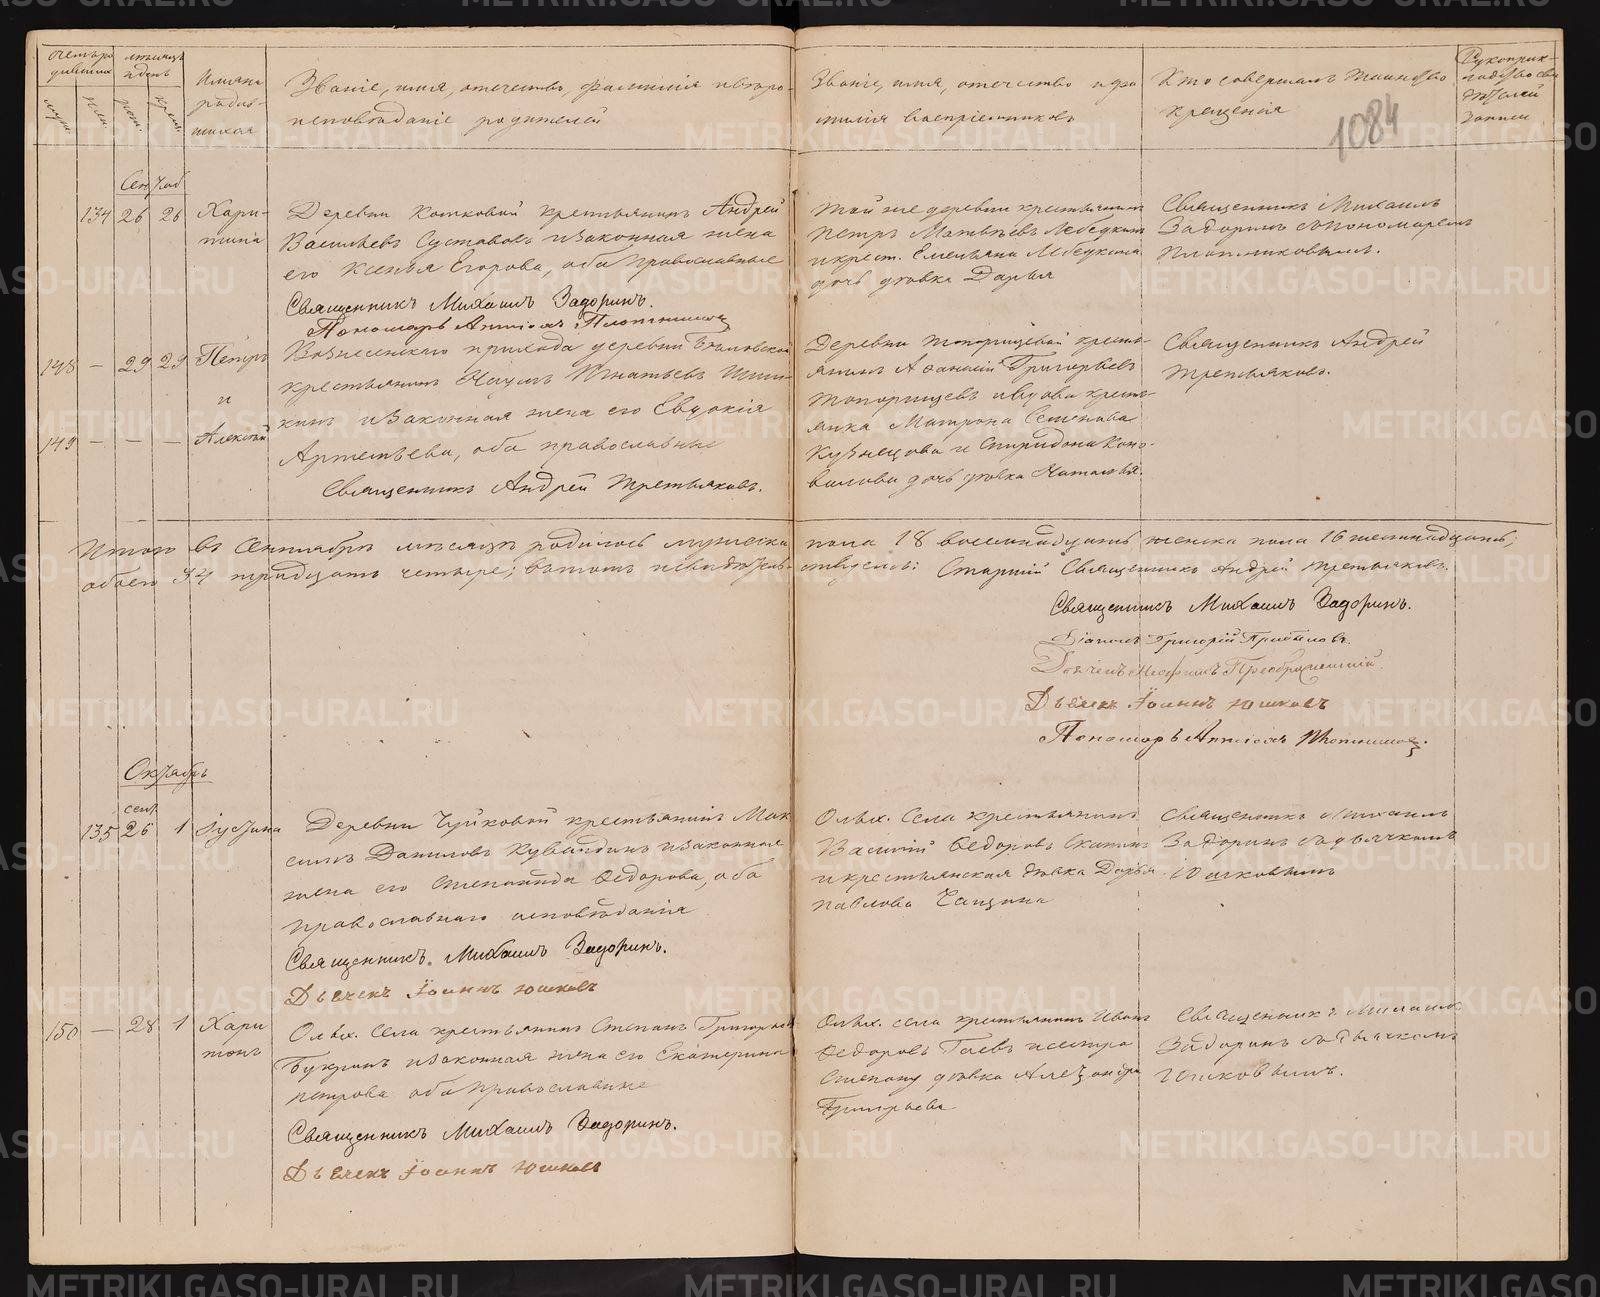 Счетъ родившихся
мѣсяцъ и день
муж.
жен.
рож.
крещ.
Имяна родив-
шихся
Званіе, имя, отечество, фамилія и вѣро-
исповѣданіе родителей
Званіе, имя, отечество и фа-
милія воспріемниковъ
Кто совершалъ таинство
крещенія
Рукоприк-
ладство сви
дѣтелей
записи
1084
Сентяб
134 26 26 Хари-
тина
Деревни Кошковой крестьянинъ Андрей
Васильевъ Суставовъ и законная жена
его Ксенья Егорова, оба православные
Священникъ Михаилъ Задоринъ.
Пономарь
Той же деревни крестьянинъ
Петръ Матвѣевъ Лебедкинъ
и крест. Емельяна Лебедкина
дочь дѣвка Дарья
Священникъ Михаилъ
Задоринъ съ пономаремъ
Плотниковымъ.
148 — 29 29 Петръ
и
149 — — — Алексѣй
Вознесенскаго прихода деревни
крестьянинъ Наумъ Игнатьевъ Шиш-
кинъ и законная жена его Евдокія
Артемьева, оба православные
Священникъ Андрей Третьяковъ.
Деревни Топорищевой кресть-
янинъ Афанасій Григорьевъ
Топорищевъ и вдова кресть-
янка Матрона Семенова
Кузнецова и Спиридона Коно-
валова дочь дѣвка Наталья.
Священникъ Андрей
Третьяковъ.
Итого въ Сентябрѣ мѣсяцѣ родилось мужеска пола 18 восемнадцать женска пола 16 шестнадцать,
обоего 34 тридцать четыре; въ томъ и свидѣтель- ствуемъ: Старшій Священникъ Андрей Третьяковъ.
Священникъ Михаилъ Задоринъ.
Діаконъ Григорій
Преображенскій.
Дьячекъ Іоаннъ Юшковъ
Пономарь
Октябрь
сент.
135 26 1 Іустина
Деревни Чуйковой крестьянинъ Мак
симъ Даниловъ Кувалдинъ и законная
жена его Степанида Федорова, оба
православнаго исповѣданія
Священникъ Михаилъ Задоринъ.
Дьячекъ Іоаннъ Юшковъ
Ольх. села крестьянинъ
Василій Федоровъ
и крестьянская дѣвка Дарья
Павлова
Священникъ Михаилъ
Задоринъ съ дьячкомъ
Юшковымъ
150 — 28 1 Хари
тонъ
Ольх. села крестьянинъ Степанъ Григорьевъ
Букринъ и законная жена его Екатерина
Петрова оба православные
Священникъ Михаилъ Задоринъ.
Дьячекъ Іоаннъ Юшковъ
Ольх. села крестьянинъ Иванъ
Федоровъ Гаевъ и сестра
Степану дѣвка Александра
Григорьева
Священникъ Михаилъ
Задоринъ съ дьячкомъ
Юшковымъ.
METRIKI.GASO-URAL.RU